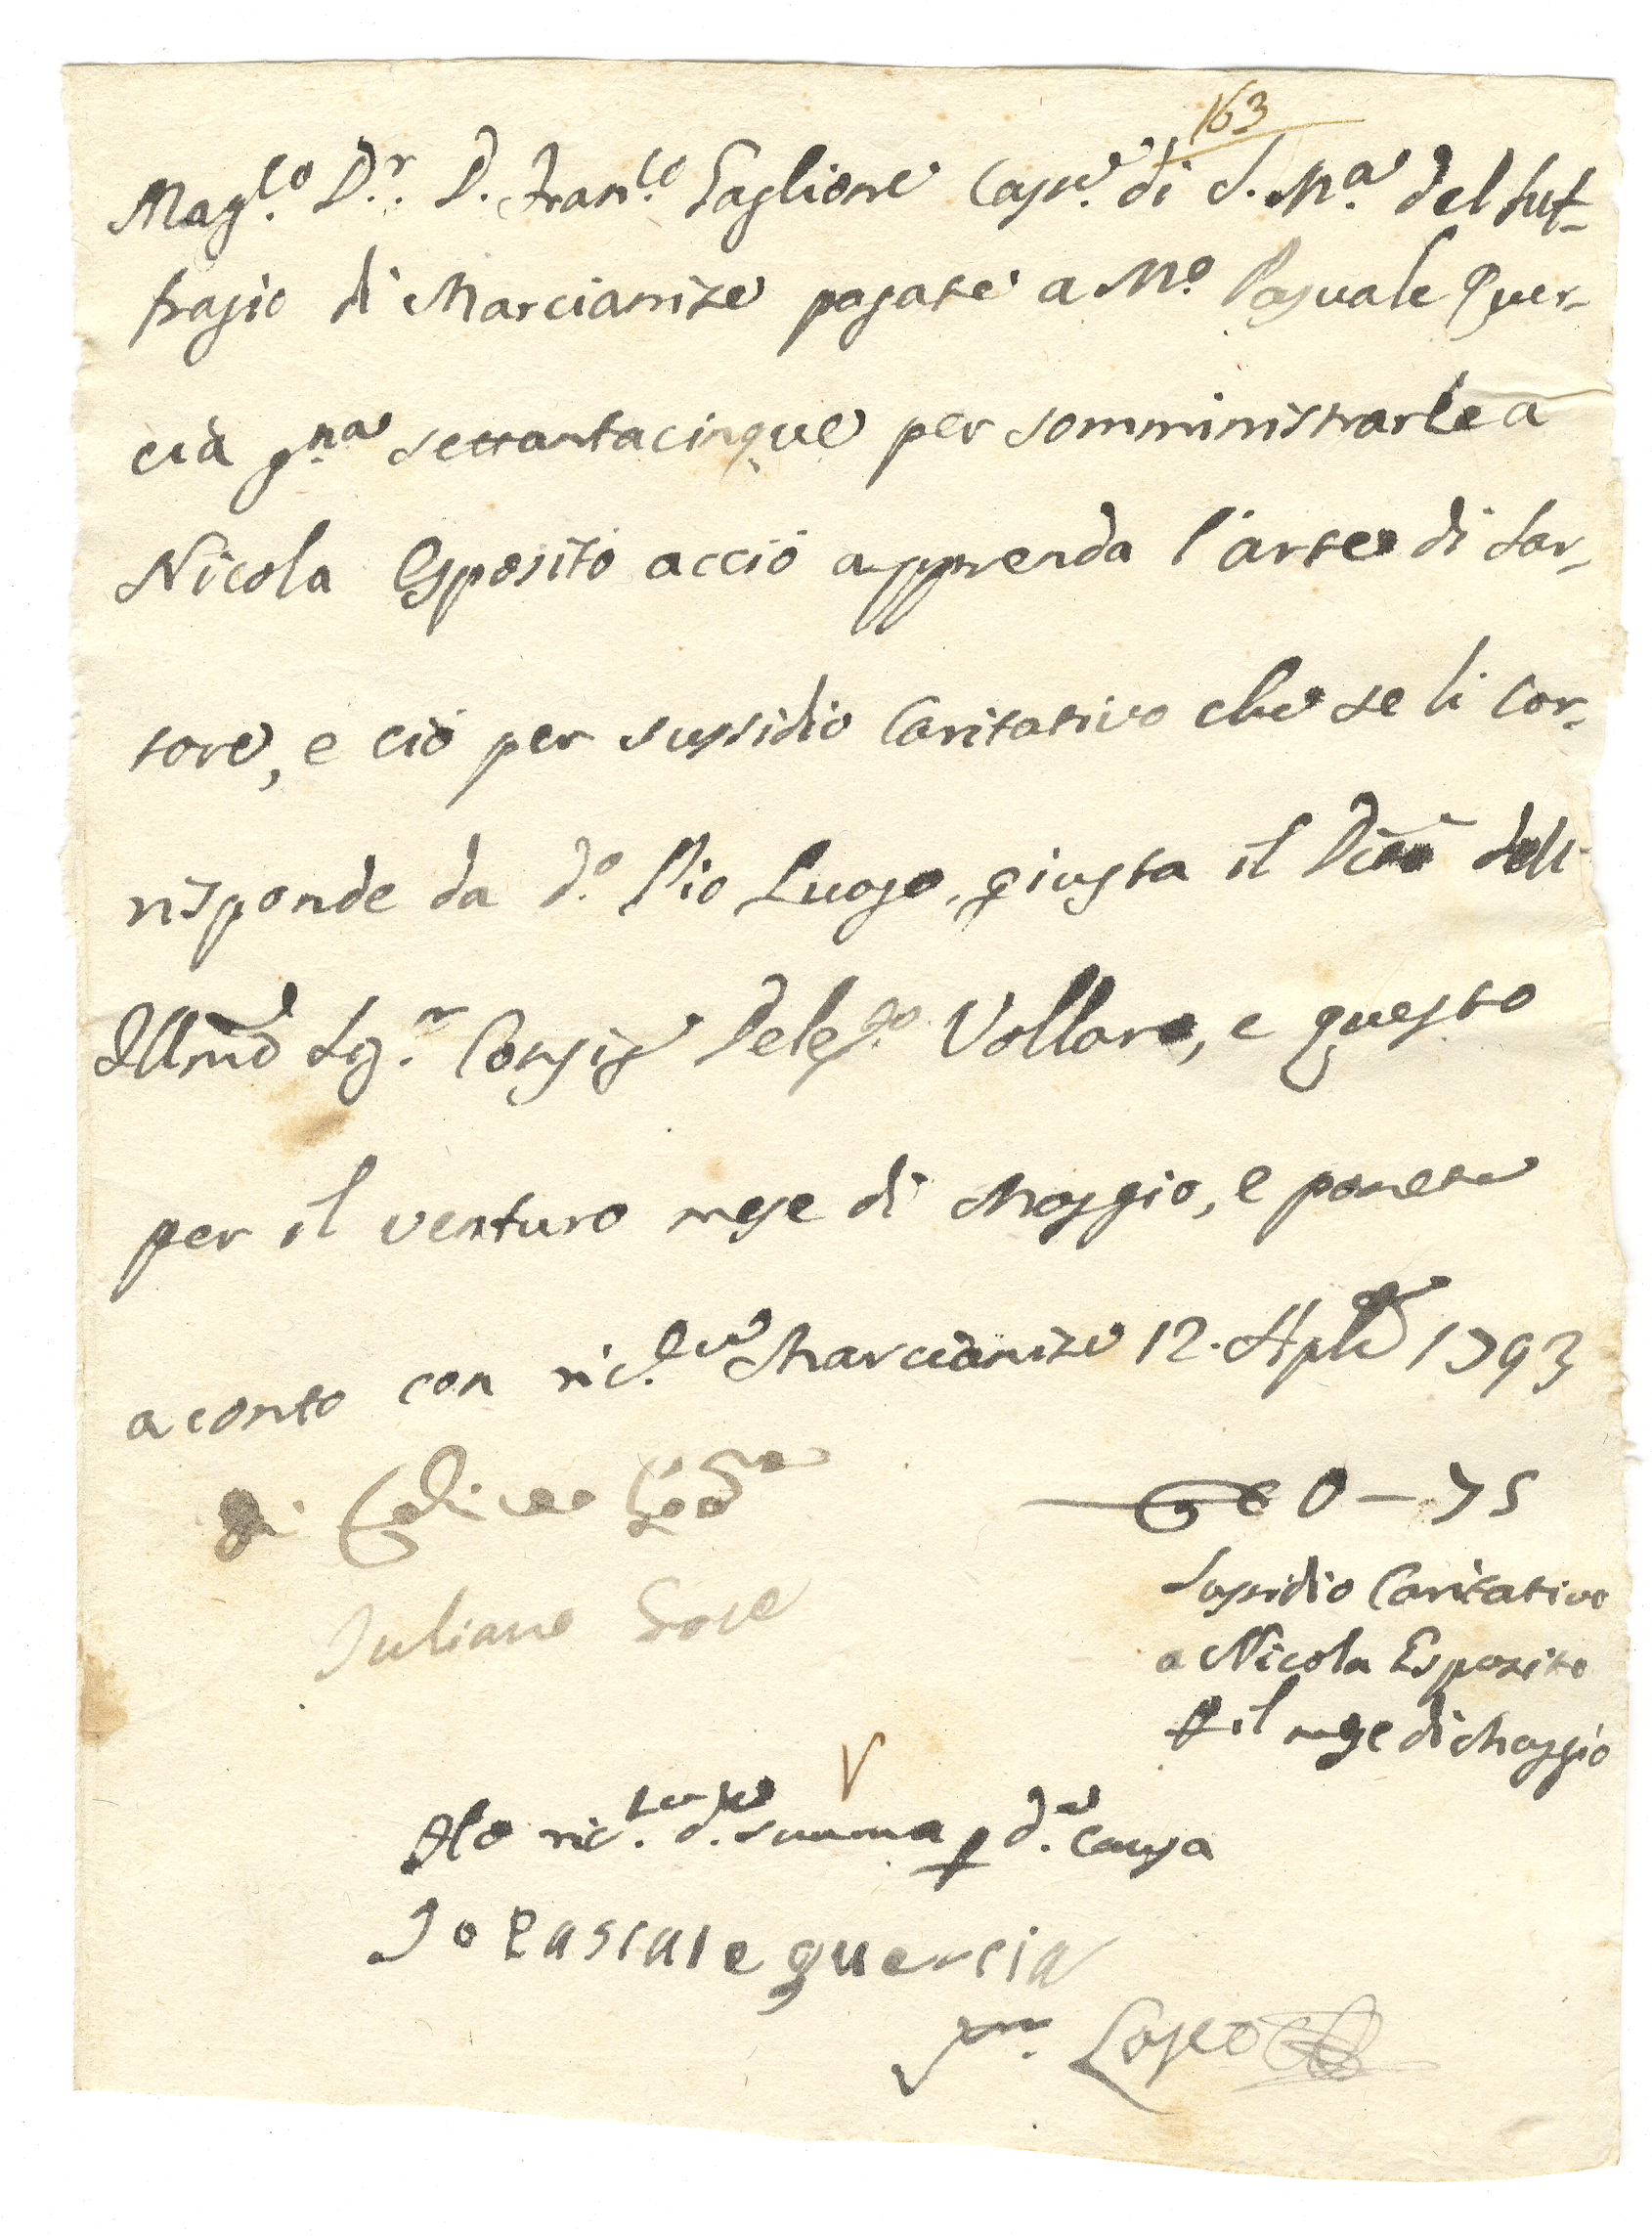 163
Mag.co D.r D. Fran.co Taglione Cass.e di S. M.a del Suf-
fragio di Marcianise pagate a M.o Pasquale Quer-
cia g.na settantacinque per somministrarle a
Nicola Esposito acciò apprenda l'arte di Sar-
tore, e ciò per sussidio Caritativo che se li cor-
risponde da d.o Pio Luogo, giusta il dell'
Illmo Sig.r Consig.e Deleg.to Vollaro, e questo
per il venturo mese di Maggio, e ponete
a conto con ric.ta Marcianise 12. Aple 1793
0-75
Sussidio Caritativo
a Nicola Esposito
p il mese di Maggio
Juliano
Ho ric.to d.ta summa p d.a causa
Io Pascale quercia